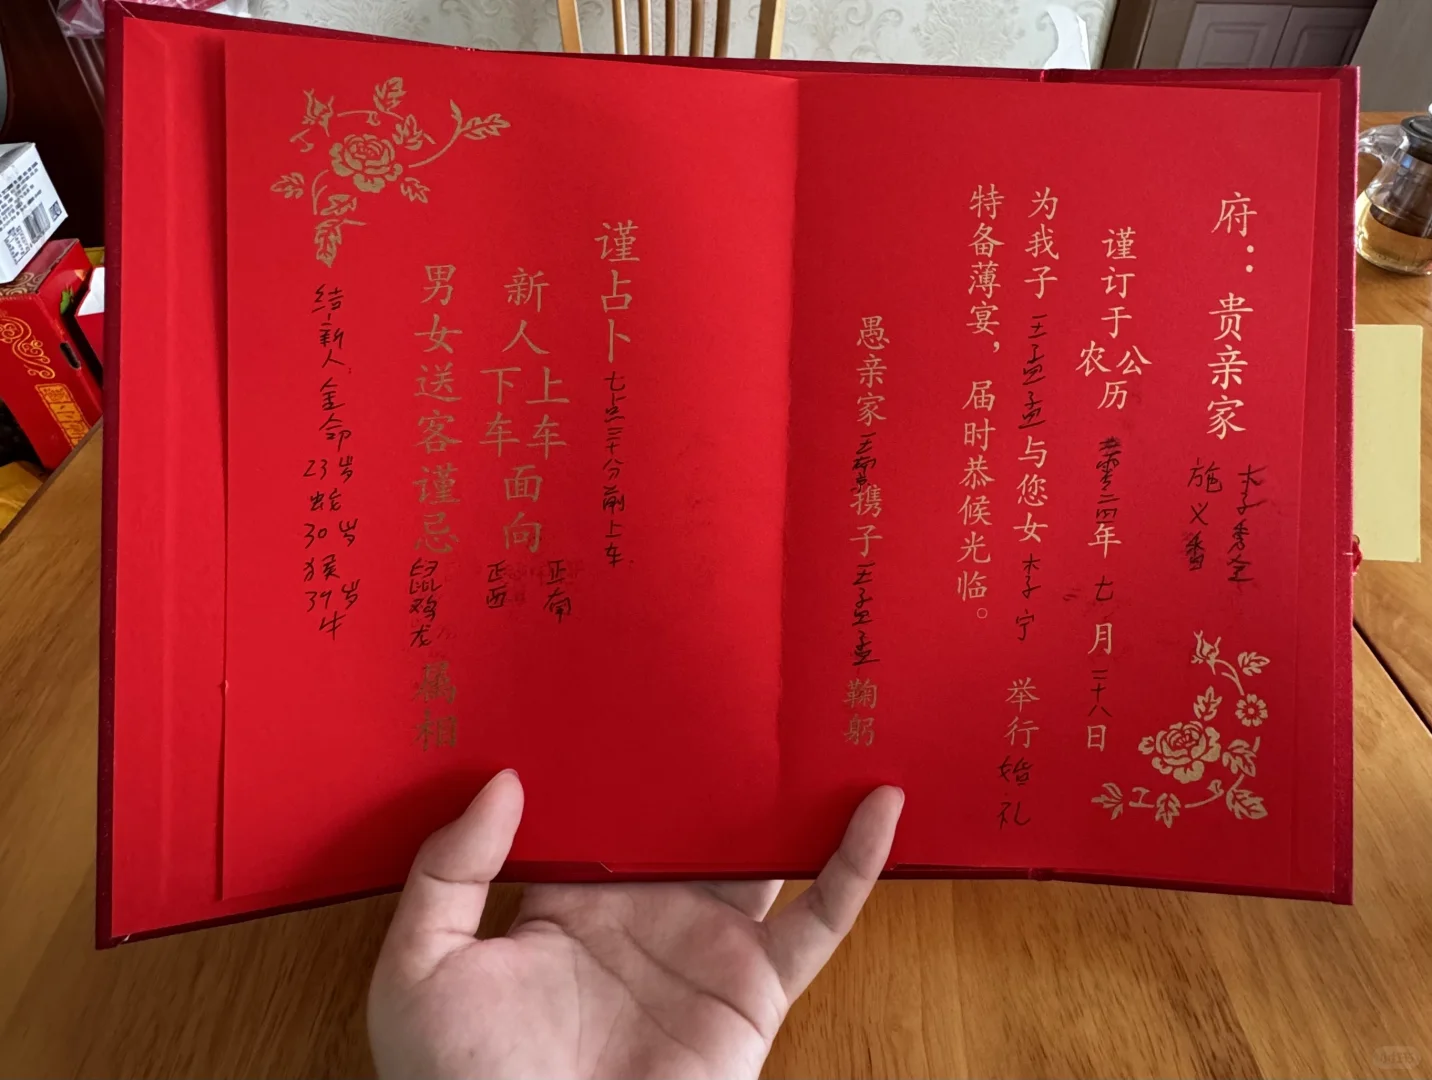 府：贵亲家
李秀全
施义香
谨订于
公历
农
二零二四年七月二十八日
为我子王孟孟与您女李宁举行婚礼
特备薄宴，届时恭候光临。
愚亲家携子王孟孟鞠躬
谨占卜七点三十分前上车
新人
上车
下车
面向
正南
正西
男女送客谨忌鼠鸡龙属相
结新人金命
23岁
蛇
30岁
猴
39岁
牛